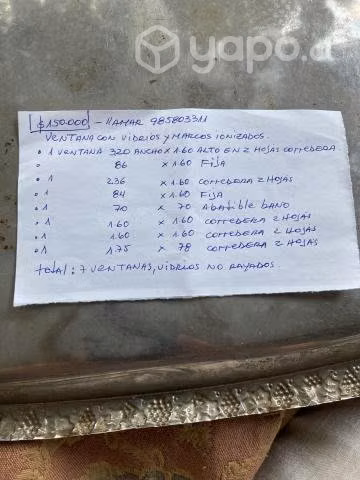 yapo.cl
$150.000 - LLAMAR 985803311
VENTANA CON VIDRIOS Y MARCOS IONIZADOS.
• 1 VENTANA 320 ANCHO X 1.60 ALTO EN 2 HOJAS CORREDERA
• 86 X 1.60 FIJA
• 1 236 X 1.60 CORREDERA 2 HOJAS
• 1 84 X 1.60 FIJA
• 1 70 X 70 Abatible baño
• 1 160 X 1.60 CORREDERA 2 HOJAS
• 1 1.60 X 1.60 CORREDERA 2 HOJAS
• 1 175 X 78 CORREDERA 2 HOJAS
total: 7 VENTANAS, VIDRIOS NO RAYADOS